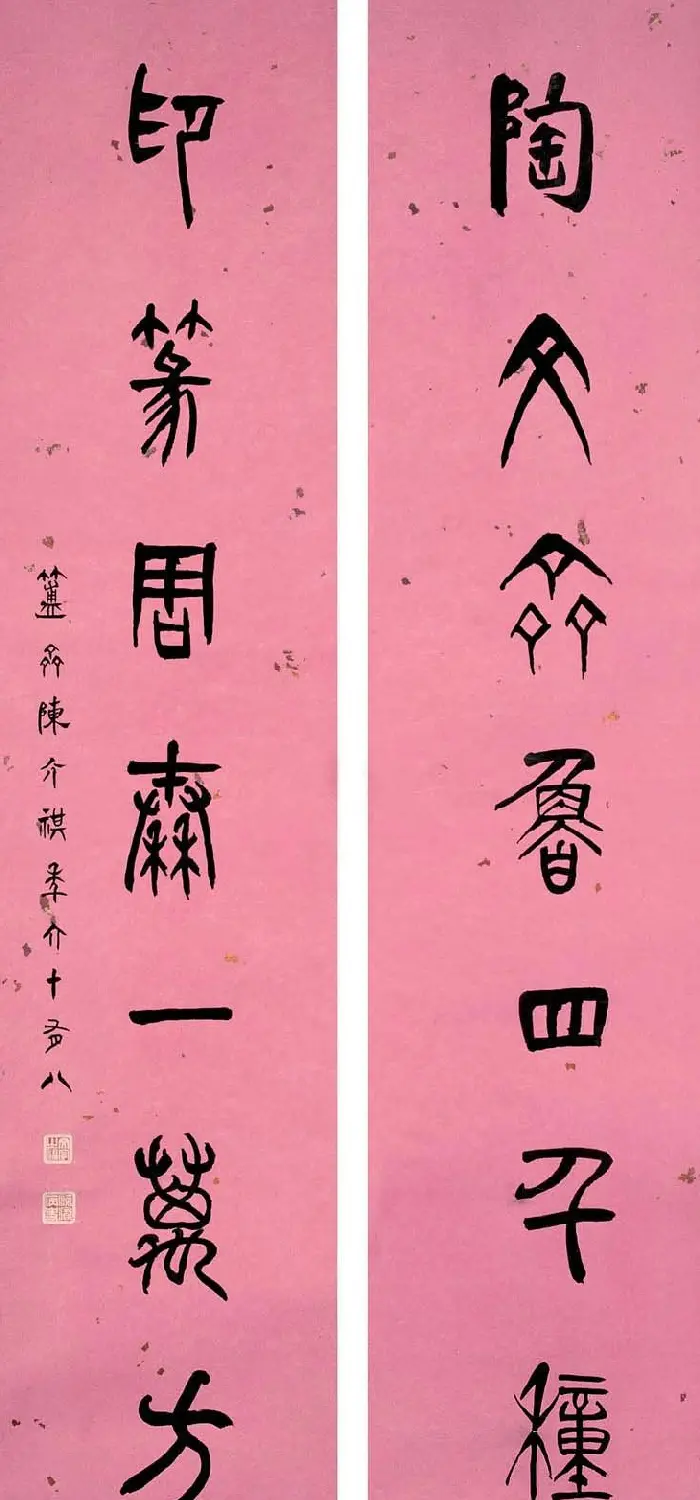 陶文齊魯四千種
印篆周秦一萬方
簠齊陳介祺年六十有八